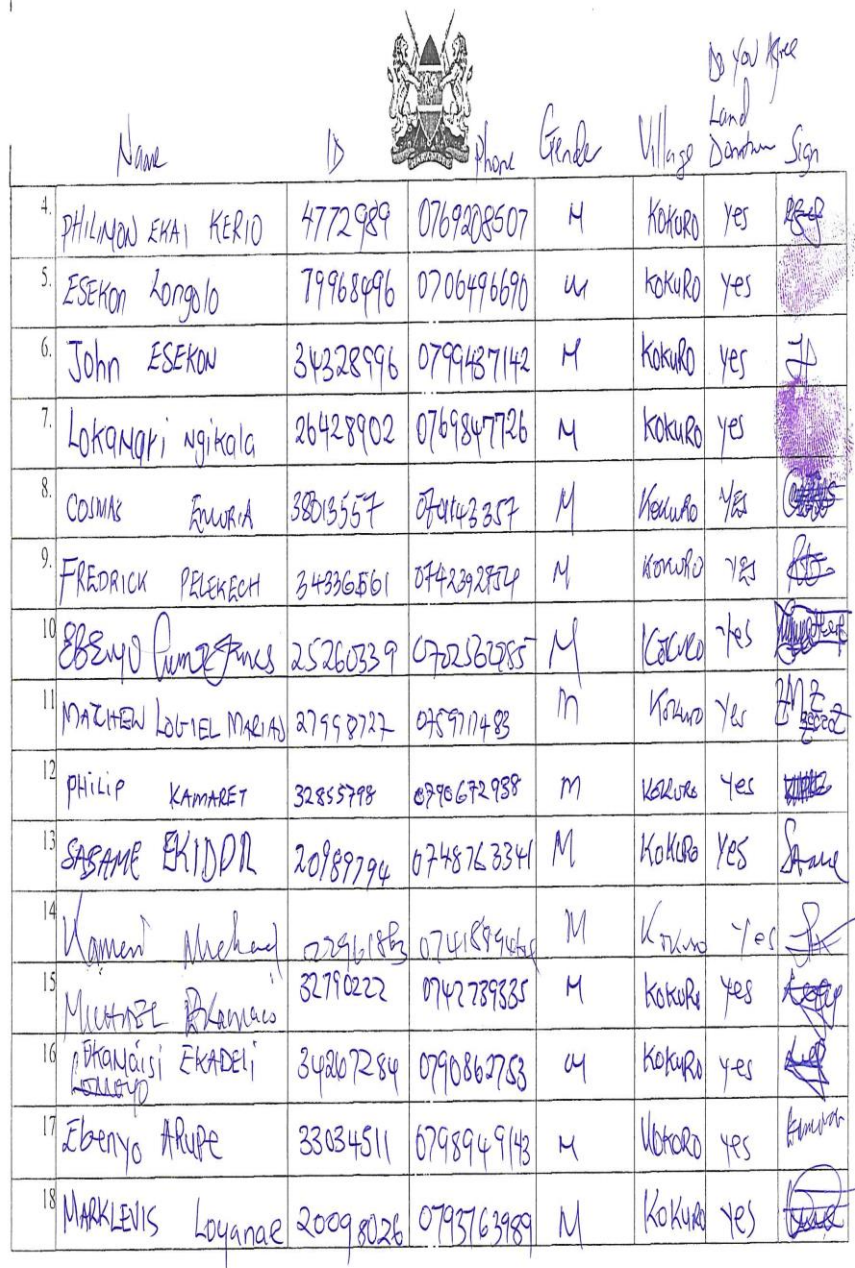 Do you Agree
Name ID Phone Gender Village Land Donation Sign
4. PHILIMON EKAI KERIO 4772989 0769208507 M KOKURO yes
5. ESEKON Longolo 79968496 0706496690 M KOKURO yes
6. John ESEKON 34328996 0799437142 M KOKURO yes
7. LOKAMARI Ngikala 26428902 0769847726 M KOKURO yes
8. COSMAS EMURIA 38013557 M KOKURO YES
9. FREDRICK PELEKECH 34336561 M KOKURO YES
10 EBENYO 25260339 M KOKURO Yes
11 MATHEW LOGIEL MARIAO M Kokuro Yes
12 PHILIP KAMARET 32855798 0790672938 M KOKURO Yes
13 SABAME EKIDOR 20989794 0748763341 M KOKURO YES
14 Michael M Kokuro Yes
15 32790222 0742739335 M KOKURO yes
16 EKADELI 34267284 0790862753 M KOKURO yes
17 Ebenyo ARUPE 33034511 0798949143 M KOKORO yes
18 MARKLEVIS Loyanae 20098026 0793763989 M KOKURO yes